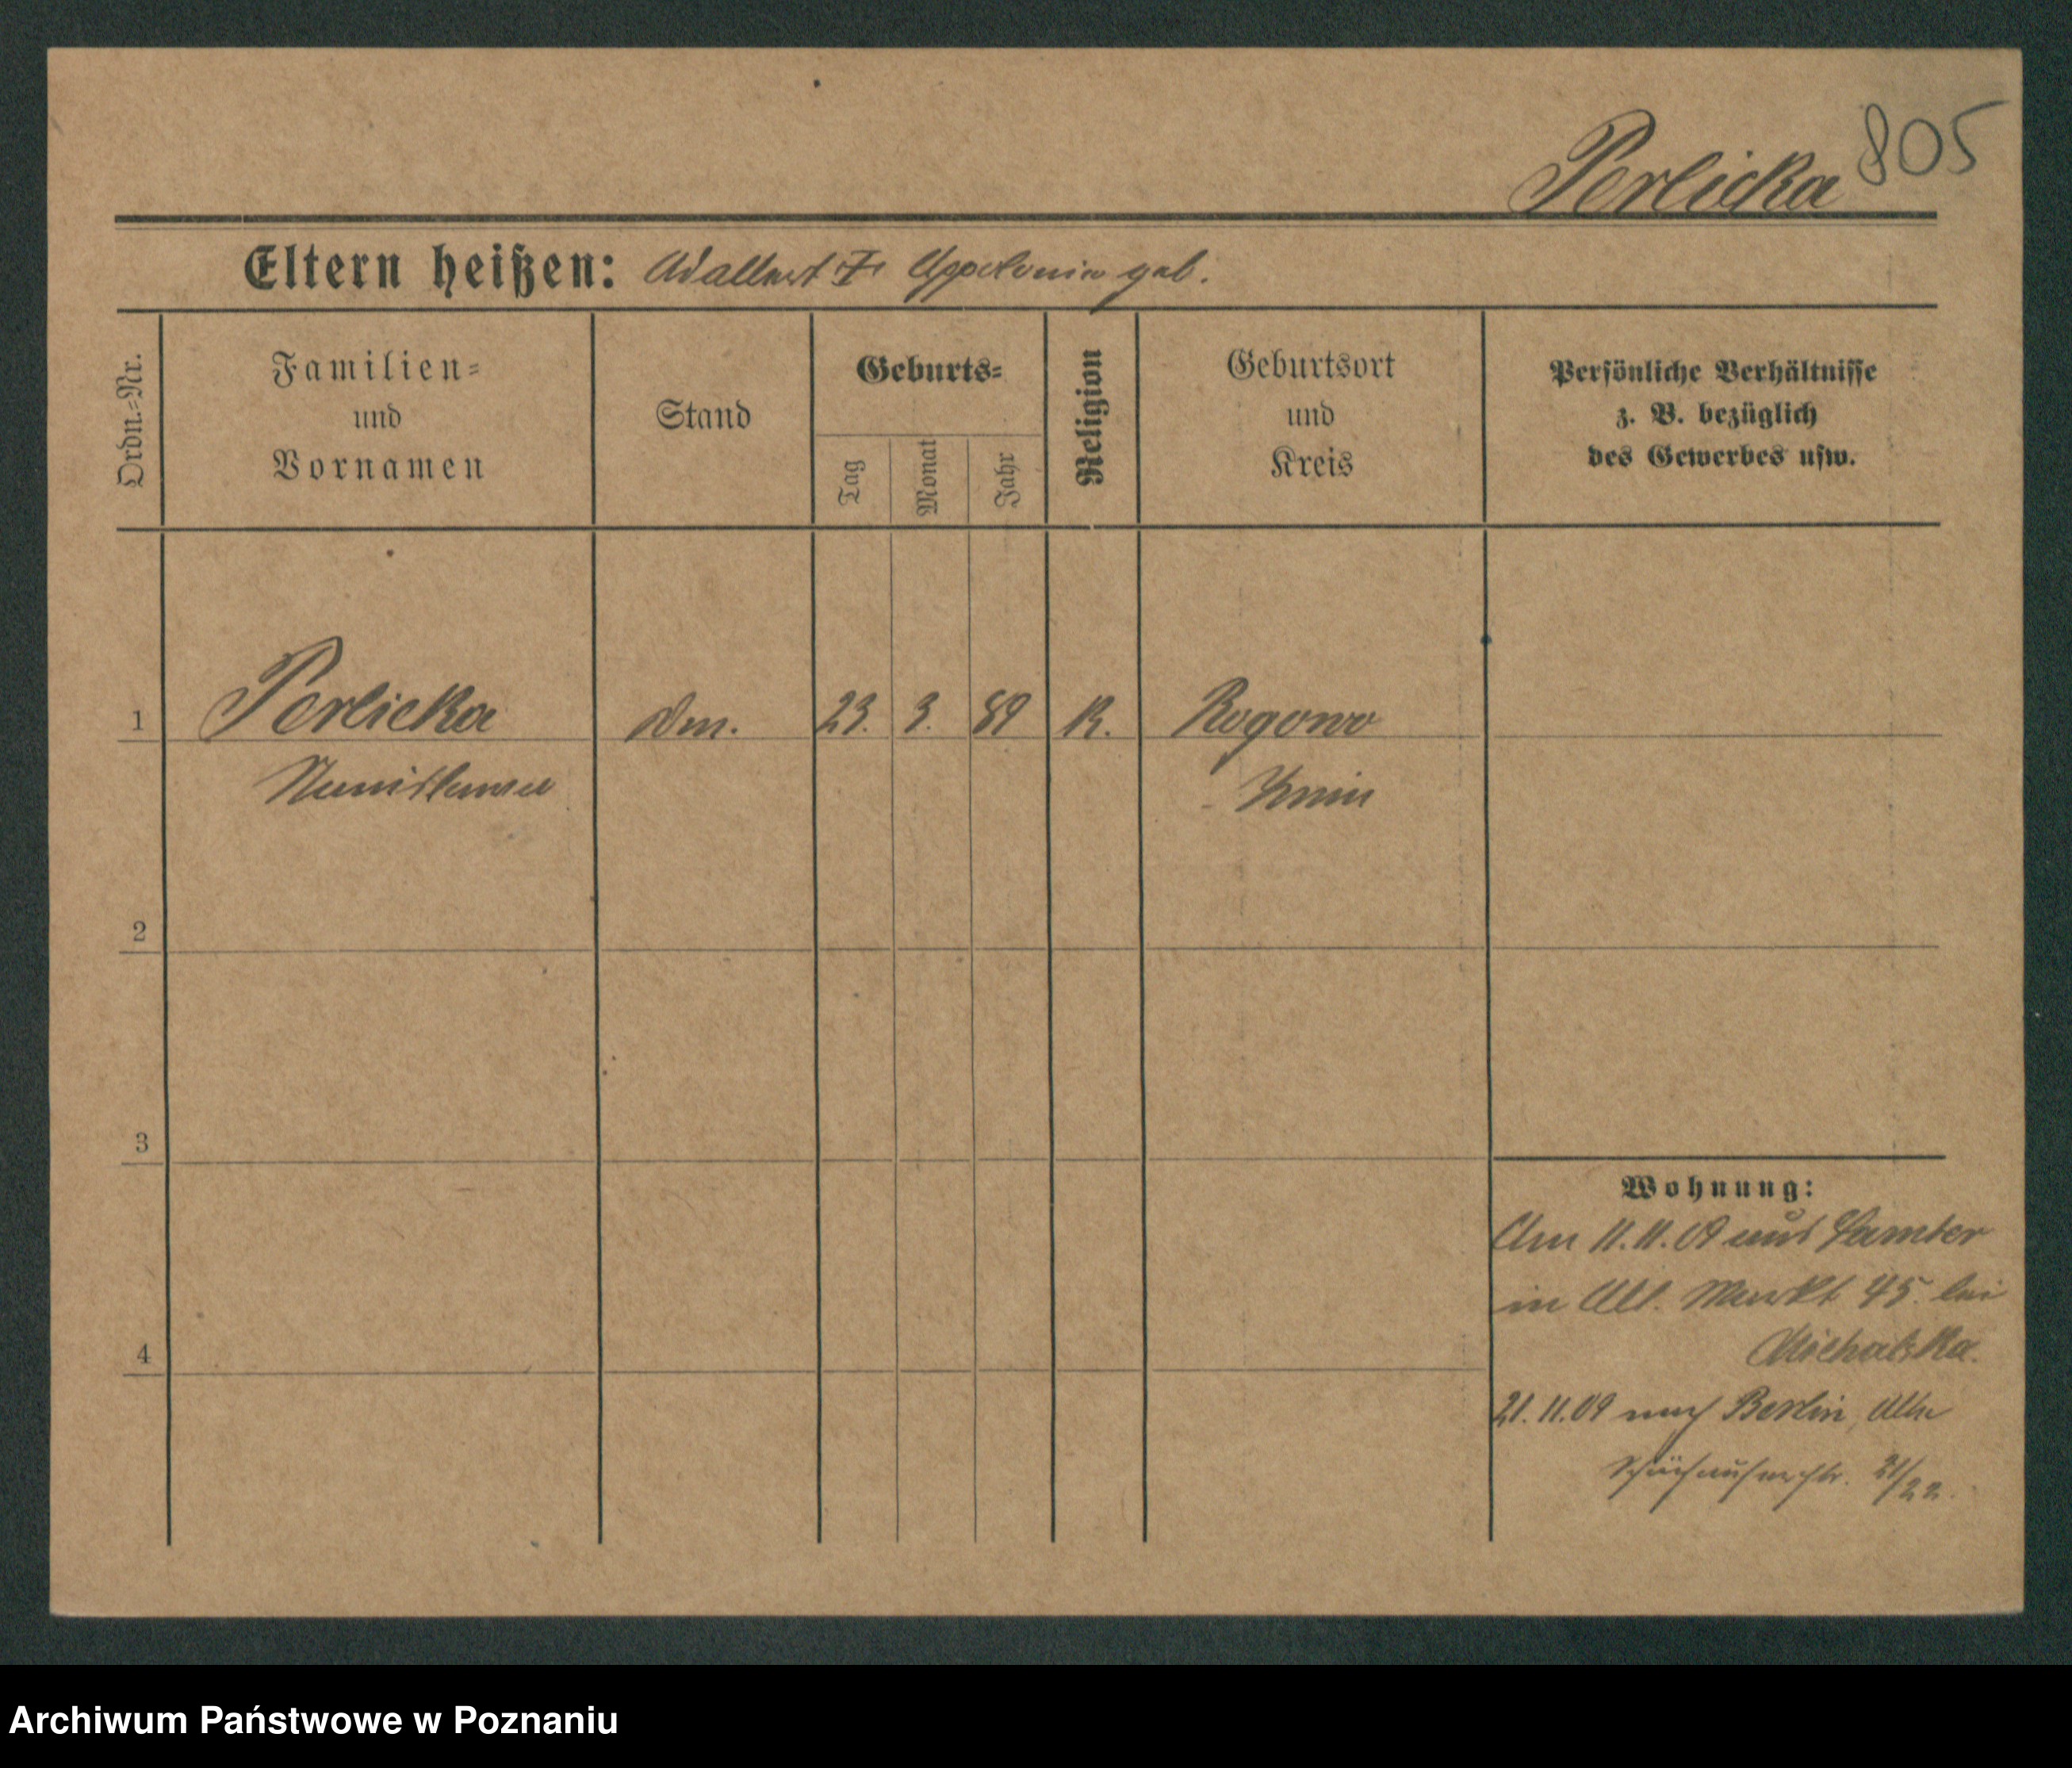 805
Perlicka
Eltern heißen: Adalbert & Appolonia geb.
Ordn.=Nr.
Familien=
und
Vornamen
Stand
Geburts=
Tag
Monat
Jahr
Religion
Geburtsort
und
Kreis
Persönliche Verhältnisse
z. B. bezüglich
des Gewerbes usw.
1 Perlicka 23. 3. 89 K. Rogowo
Stanislawa Znin
2
3
4
Wohnung:
Am 11.11.09 aus Samter
in Alt. Markt 45. bei
Michalska.
21.11.09 nach Berlin, Alte
21/22.
Archiwum Państwowe w Poznaniu